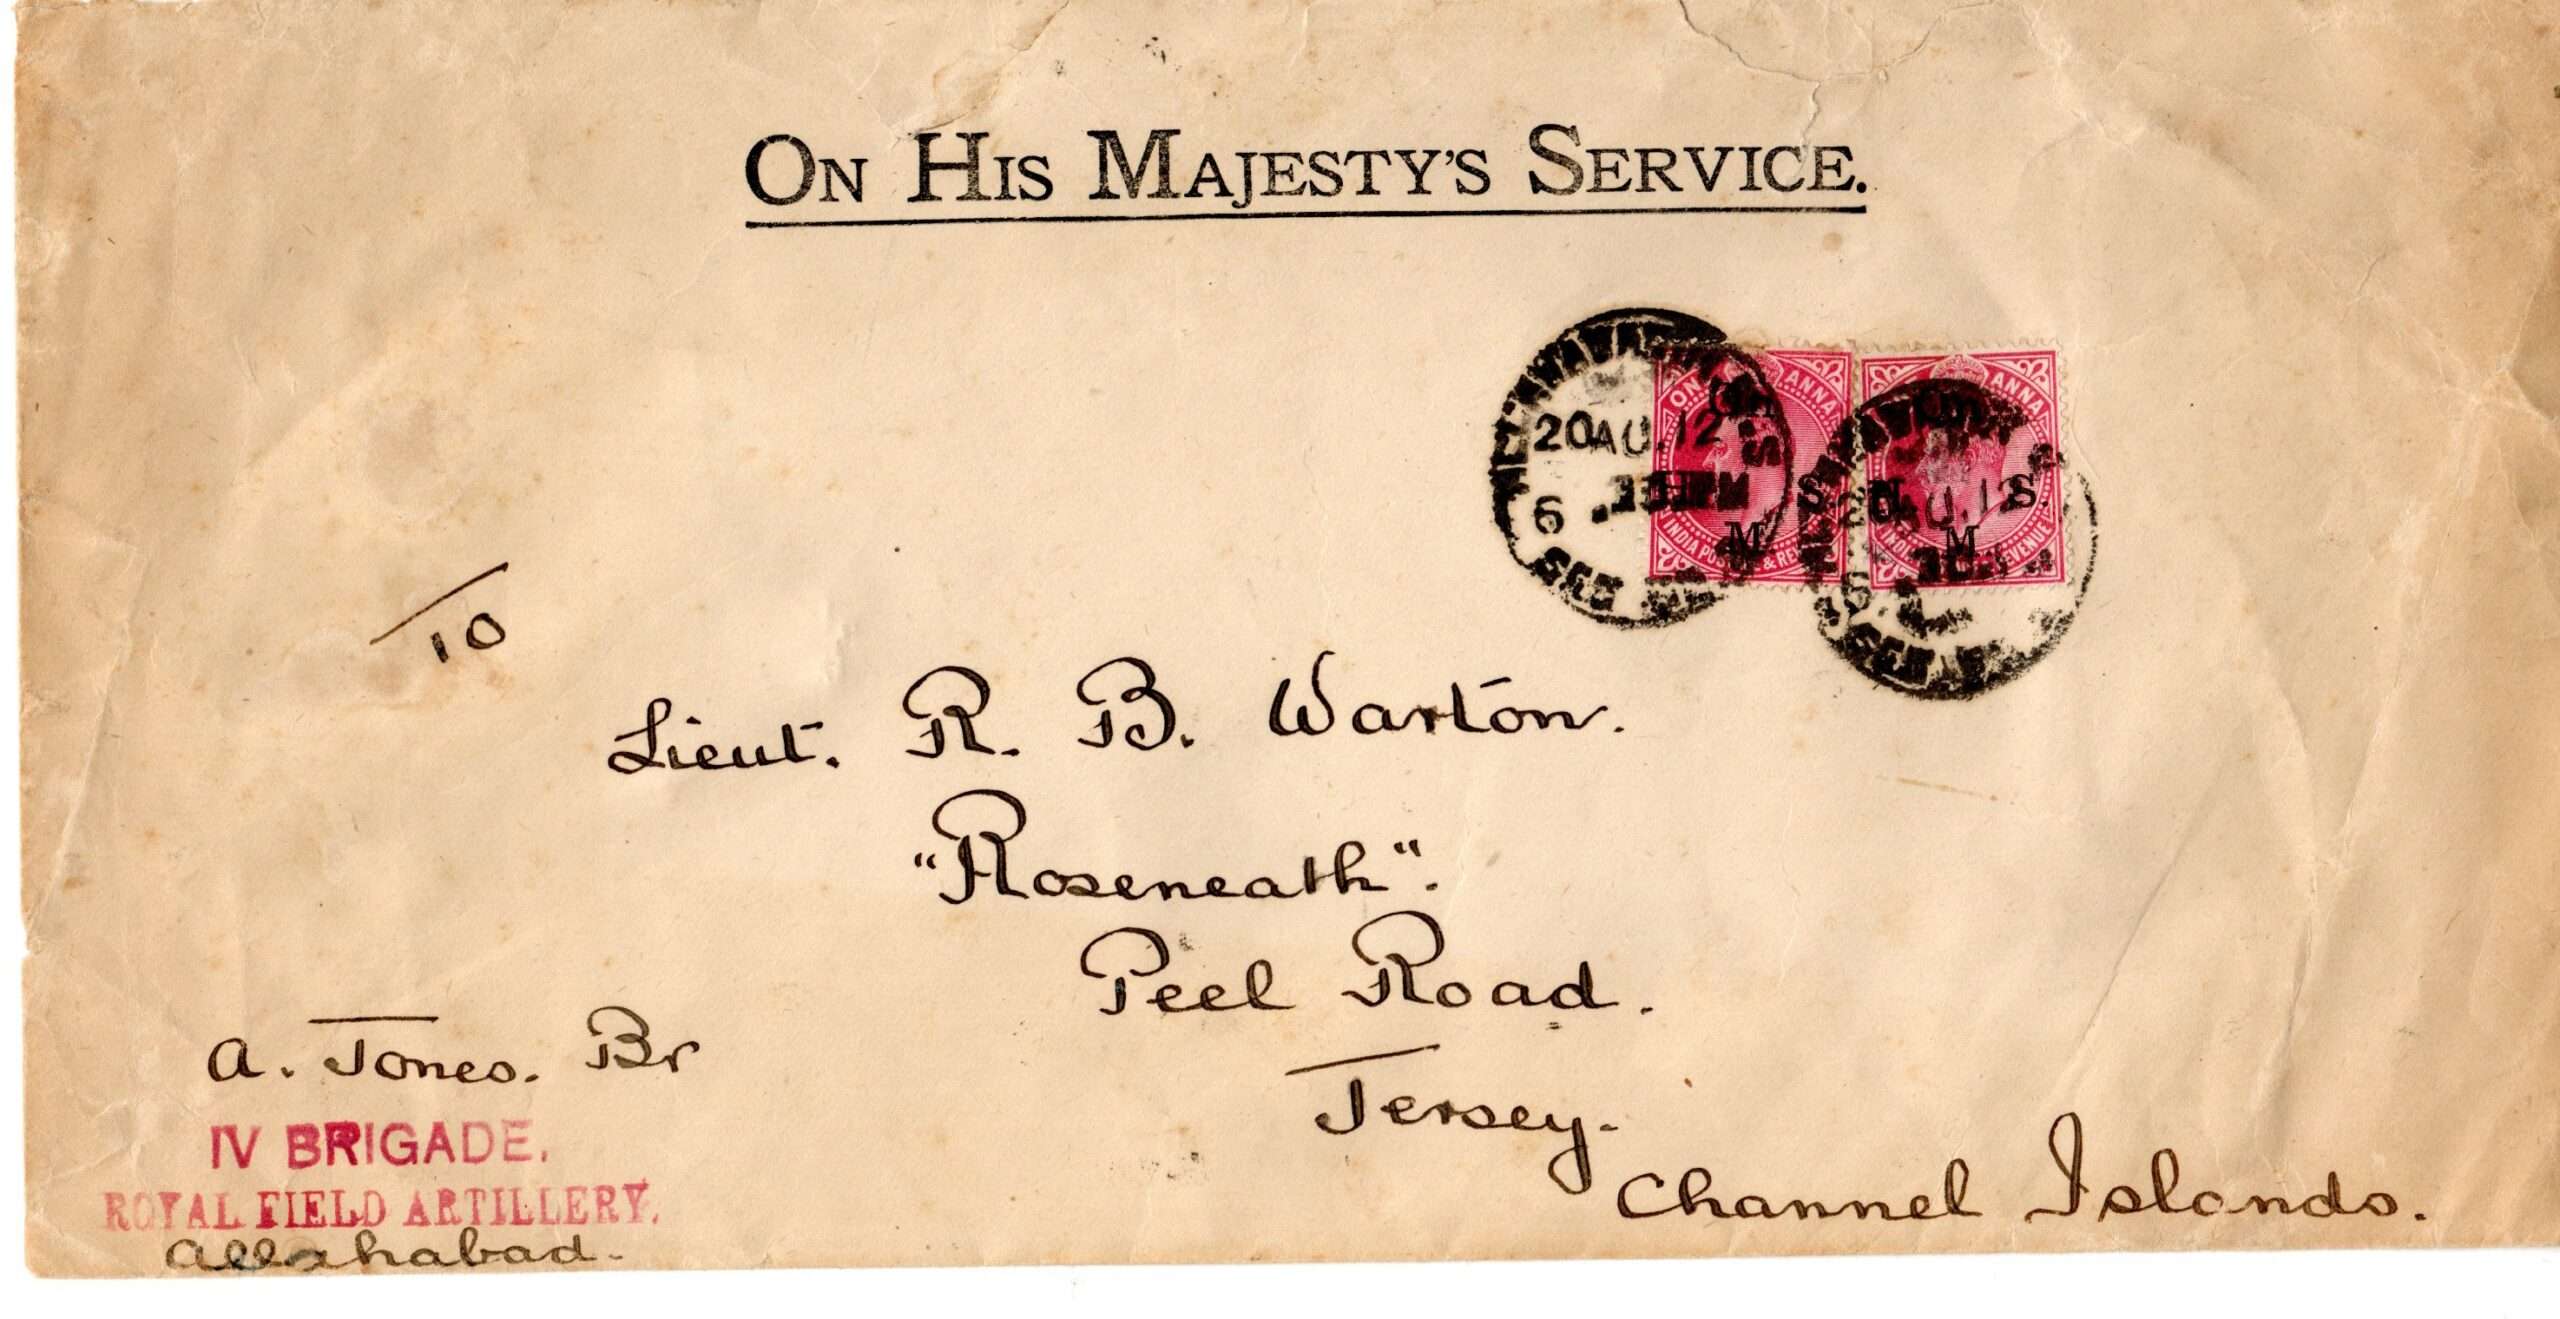 ON HIS MAJESTY'S SERVICE.
20 AU. 12
6
ONE ANNA
INDIA POSTAGE & REVENUE
On
H. M. S.
ONE ANNA
INDIA POSTAGE & REVENUE
On
H. M. S.
20 AU. 12
/10
Lieut. R. B. Warton.
"Roseneath".
Peel Road.
Jersey.
Channel Islands.
A. Jones. Br
IV BRIGADE.
ROYAL FIELD ARTILLERY.
Allahabad.